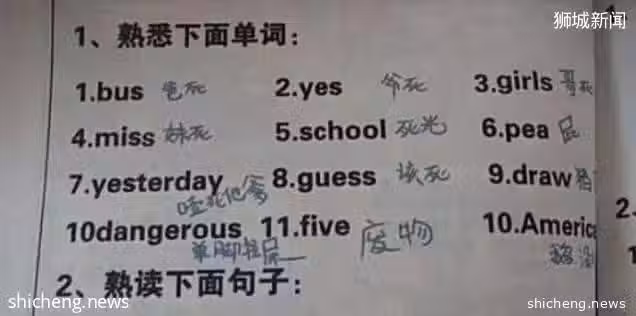 狮城新闻
1、熟悉下面单词：
1.bus 爸死 2.yes 爷死 3.girls 哥死
4.miss 妹死 5.school 死光 6.pea 屁
7.yesterday 8.guess 该死 9.draw
噎死他爹
10dangerous 11.five 废物 10.Americ
单脚拉屎
2、熟读下面句子：
2.
shicheng.news
shicheng.news